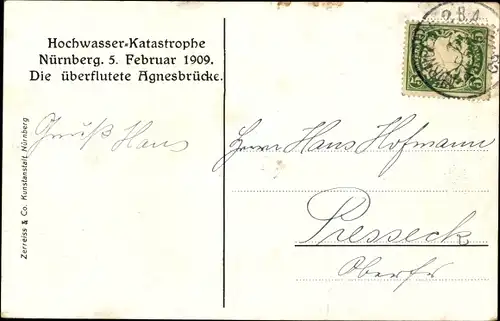 Hochwasser-Katastrophe
Nürnberg. 5. Februar 1909.
Die überflutete Agnesbrücke.
Gruß Hans
Zerreiss & Co. Kunstanstalt, Nürnberg
Herrn Hans Hofmann
Presseck
Oberfr